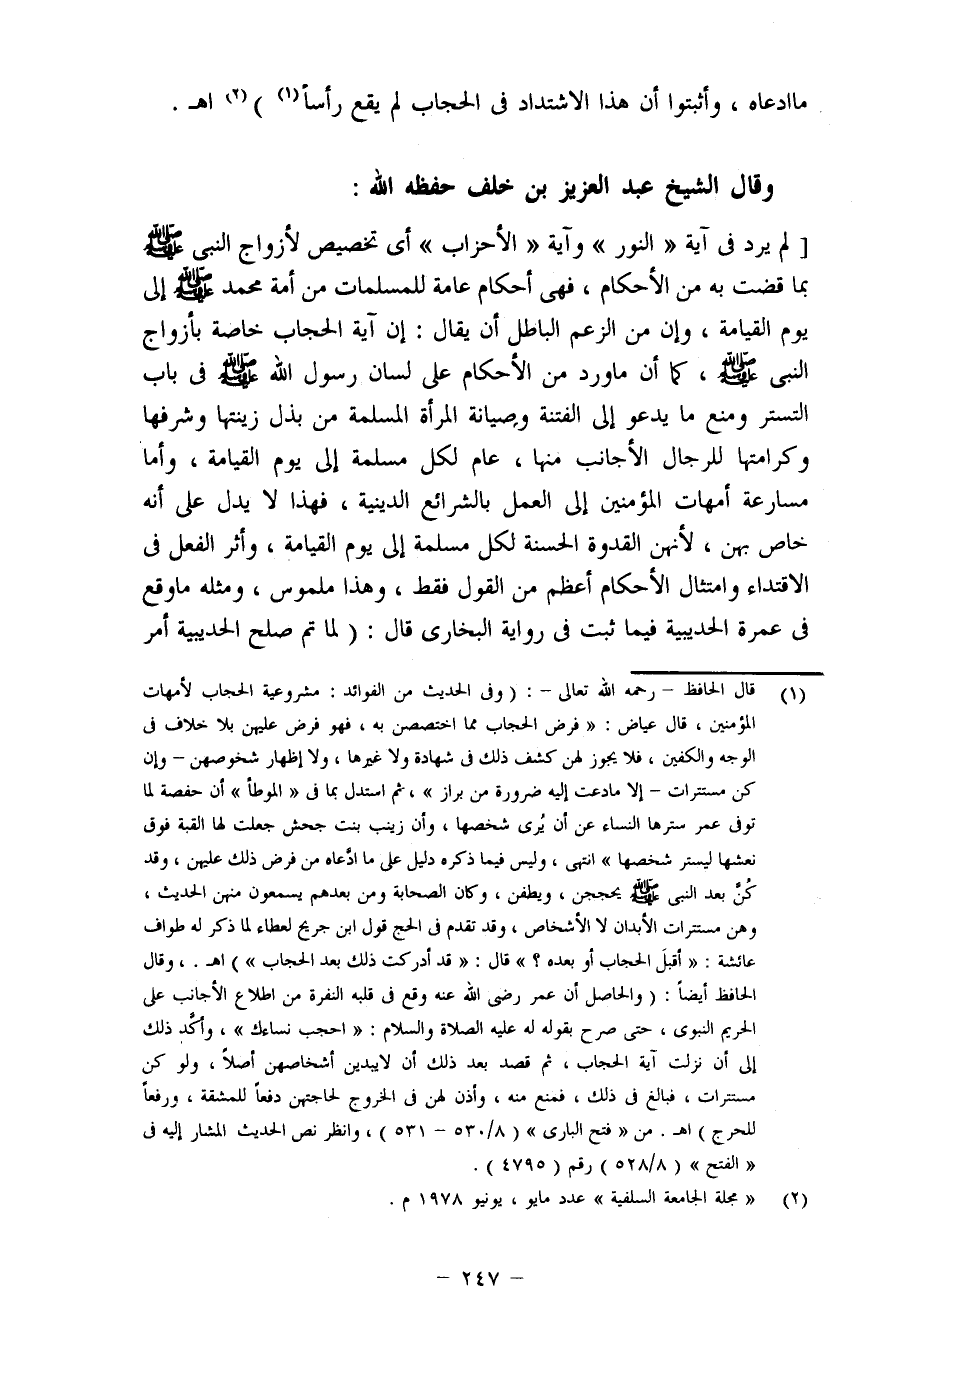 ماادعاه ، وأثبتوا أن هذا الاشتداد فى الحجاب لم يقع رأساً (١) ) (٢) اهـ .
وقال الشيخ عبد العزيز بن خلف حفظه الله :
[ لم يرد فى آية « النور » وآية « الأحزاب » أى تخصيص لأزواج النبى ﷺ
بما قضت به من الأحكام ، فهى أحكام عامة للمسلمات من أمة محمد ﷺ إلى
يوم القيامة ، وإن من الزعم الباطل أن يقال : إن آية الحجاب خاصة بأزواج
النبى ﷺ ، كما أن ماورد من الأحكام على لسان رسول الله ﷺ فى باب
التستر ومنع ما يدعو إلى الفتنة وصيانة المرأة المسلمة من بذل زينتها وشرفها
وكرامتها للرجال الأجانب منها ، عام لكل مسلمة إلى يوم القيامة ، وأما
مسارعة أمهات المؤمنين إلى العمل بالشرائع الدينية ، فهذا لا يدل على أنه
خاص بهن ، لأنهن القدوة الحسنة لكل مسلمة إلى يوم القيامة ، وأثر الفعل فى
الاقتداء وامتثال الأحكام أعظم من القول فقط ، وهذا ملموس ، ومثله ماوقع
فى عمرة الحديبية فيما ثبت فى رواية البخارى قال : ( لما تم صلح الحديبية أمر
(١) قال الحافظ – رحمه الله تعالى – : ( وفى الحديث من الفوائد : مشروعية الحجاب لأمهات
المؤمنين ، قال عياض : « فرض الحجاب مما اختصصن به ، فهو فرض عليهن بلا خلاف فى
الوجه والكفين ، فلا يجوز لهن كشف ذلك فى شهادة ولا غيرها ، ولا إظهار شخوصهن – وإن
كن مستترات – إلا مادعت إليه ضرورة من براز » ، ثم استدل بما فى « الموطأ » أن حفصة لما
توفى عمر سترها النساء عن أن يُرى شخصها ، وأن زينب بنت جحش جعلت لها القبة فوق
نعشها ليستر شخصها » انتهى ، وليس فيما ذكره دليل على ما ادَّعاه من فرض ذلك عليهن ، وقد
كُنَّ بعد النبى ﷺ يحججن ، ويطفن ، وكان الصحابة ومن بعدهم يسمعون منهن الحديث ،
وهن مستترات الأبدان لا الأشخاص ، وقد تقدم فى الحج قول ابن جريج لعطاء لما ذكر له طواف
عائشة : « أقبلَ الحجاب أو بعده ؟ » قال : « قد أدركت ذلك بعد الحجاب » ) اهـ . ، وقال
الحافظ أيضاً : ( والحاصل أن عمر رضى الله عنه وقع فى قلبه النفرة من اطلاع الأجانب على
الحريم النبوى ، حتى صرح بقوله له عليه الصلاة والسلام : « احجب نساءك » ، وأكَّد ذلك
إلى أن نزلت آية الحجاب ، ثم قصد بعد ذلك أن لايبدين أشخاصهن أصلاً ، ولو كن
مستترات ، فبالغ فى ذلك ، فمنع منه ، وأذن لهن فى الخروج لحاجتهن دفعاً للمشقة ، ورفعاً
للحرج ) اهـ . من « فتح البارى » ( ٥٣٠/٨ – ٥٣١ ) ، وانظر نص الحديث المشار إليه فى
« الفتح » ( ٥٢٨/٨ ) رقم ( ٤٧٩٥ ) .
(٢) « مجلة الجامعة السلفية » عدد مايو ، يونيو ١٩٧٨ م .
– ٢٤٧ –